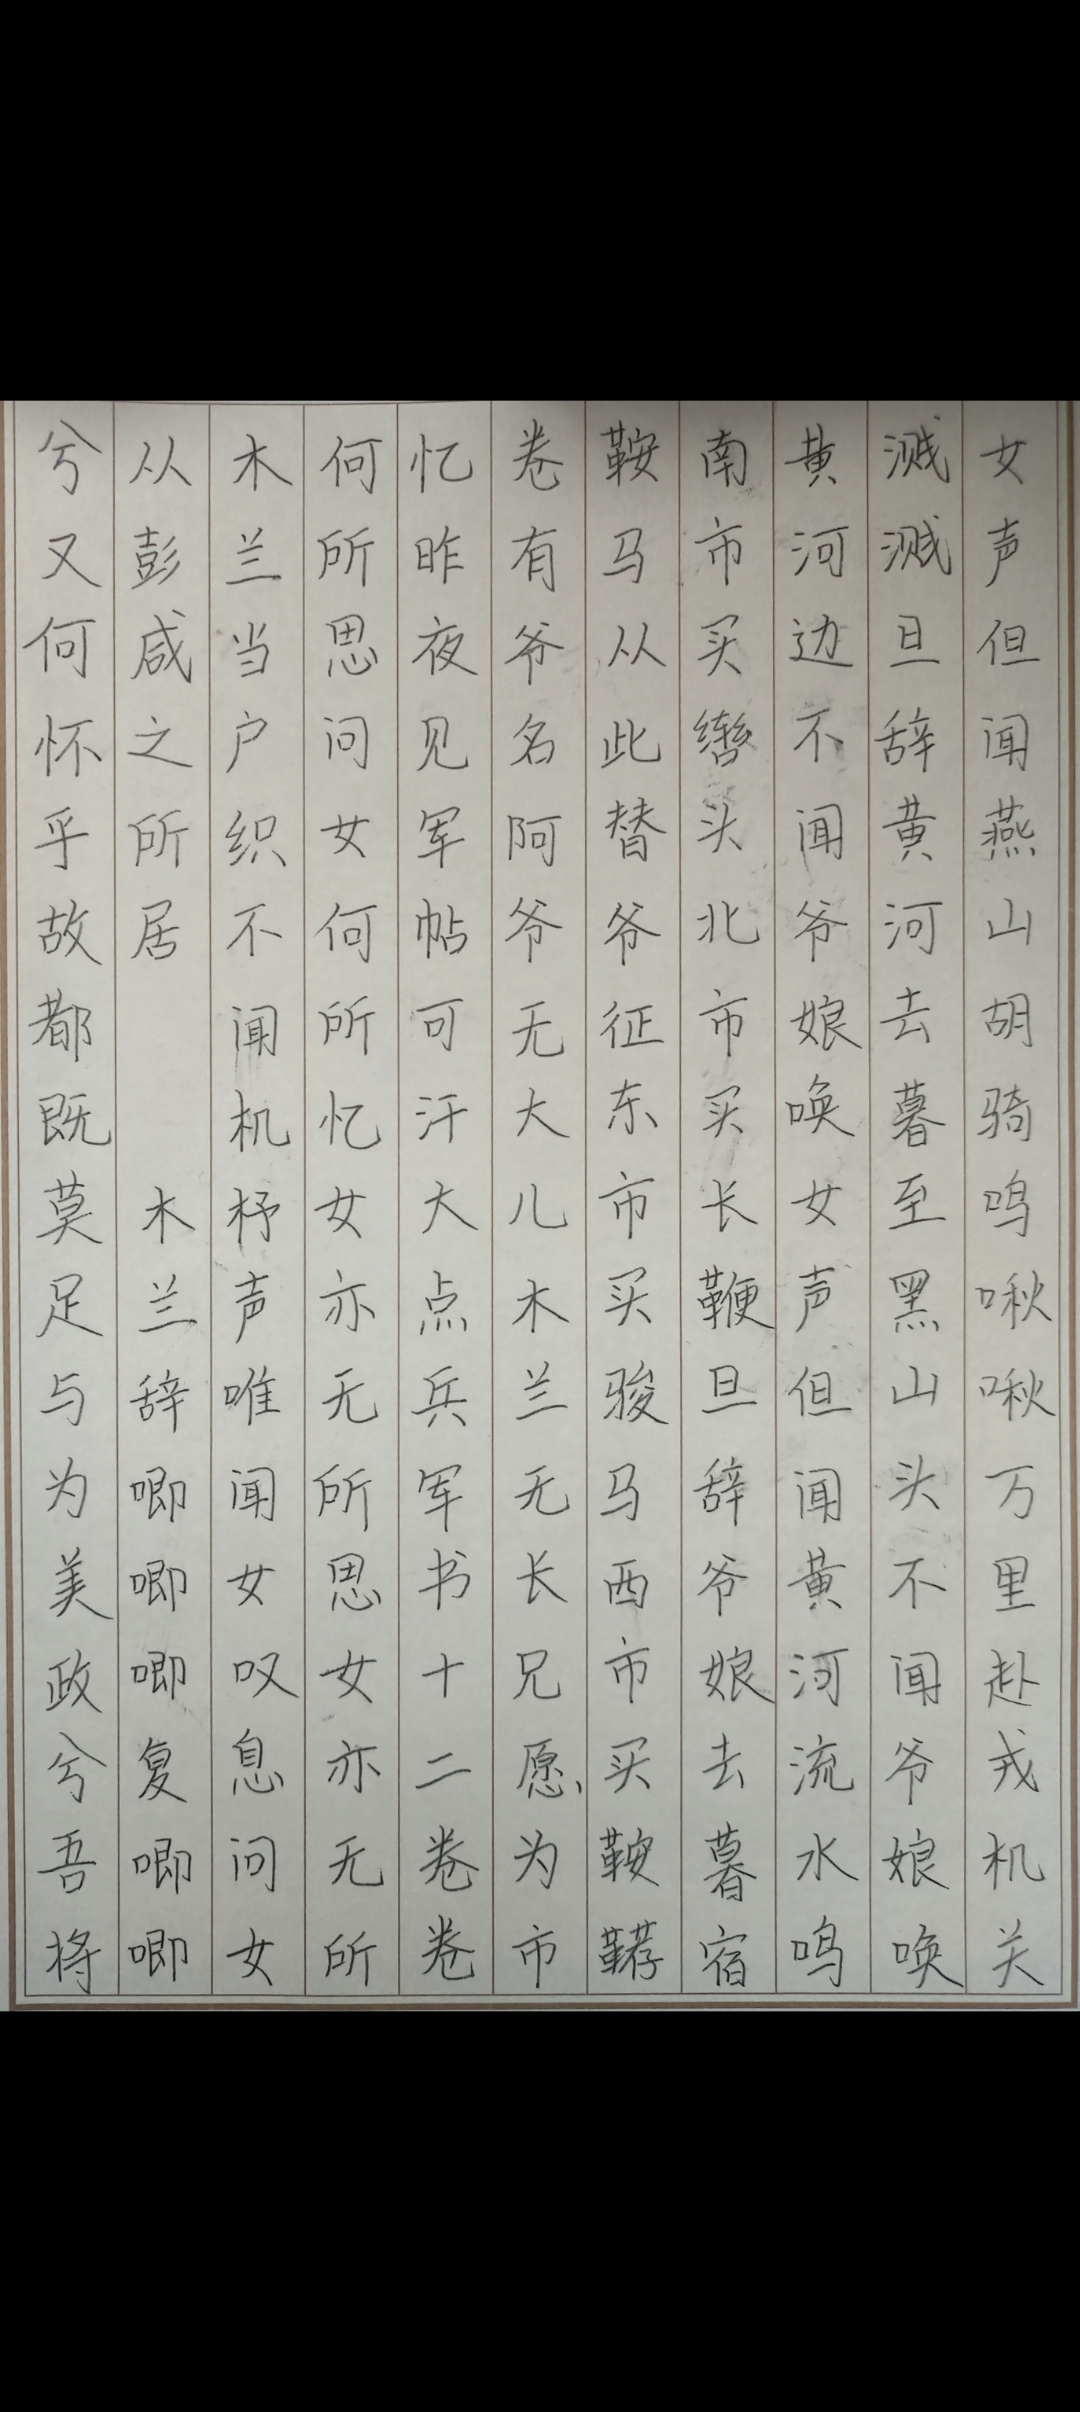 兮又何怀乎故都既莫足与为美政兮吾将
从彭咸之所居 木兰辞唧唧唧复唧唧
木兰当户织不闻机杼声唯闻女叹息问女
何所思问女何所忆女亦无所思女亦无所
忆昨夜见军帖可汗大点兵军书十二卷卷
卷有爷名阿爷无大儿木兰无长兄愿为市
鞍马从此替爷征东市买骏马西市买鞍鞯
南市买辔头北市买长鞭旦辞爷娘去暮宿
黄河边不闻爷娘唤女声但闻黄河流水鸣
溅溅旦辞黄河去暮至黑山头不闻爷娘唤
女声但闻燕山胡骑鸣啾啾万里赴戎机关